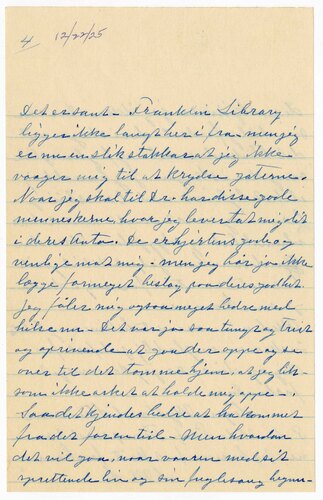 4 12/22/25
Det er sant - Franklin Library
ligger ikke langt her i fra - men jeg
er nu en slik stakkar at jeg ikke
vaager mig til at krydse gaterne.
Naar jeg skal til Dr. har disse gode
menneskerne, hvor jeg lever tat mig dit
i deres Auto. De er hjertens gode og
venlige mot mig - men jeg bør jo ikke
lægge formeget beslag paa deres godhet
Jeg føler mig ogsaa meget bedre med
hilse nu - Det var jo saa tungt og trist
og oprivende at gaa der oppe og se
over til det tomme hjem, at jeg lik-
som ikke orket at holde mig oppe -.
Saa det kjendes bedre at ha kommet
fra det for en tid - Men hvordan
det vil gaa, naar vaaren med sit
sprettende liv og sin fuglesang begyn-